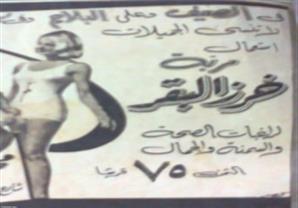 في الصيف وعلى البلاج
لا تنسى الجميلات
استعمال
مربة
خرز البقر
لراغبات الصحة
والسمنة والجمال
الثمن ٧٥ قرشا